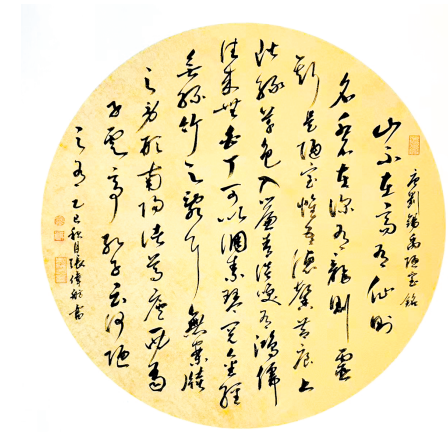 唐劉錫禹陋室銘
山不在高有仙則
名水不在深有龍則靈
斯是陋室惟吾德馨苔痕上
階綠草色入簾青談笑有鴻儒
往來無白丁可以調素琴閱金經
無絲竹之亂耳無案牘
之勞形南陽諸葛廬西蜀
子雲亭孔子云何陋
之有 乙巳秋月張偉書